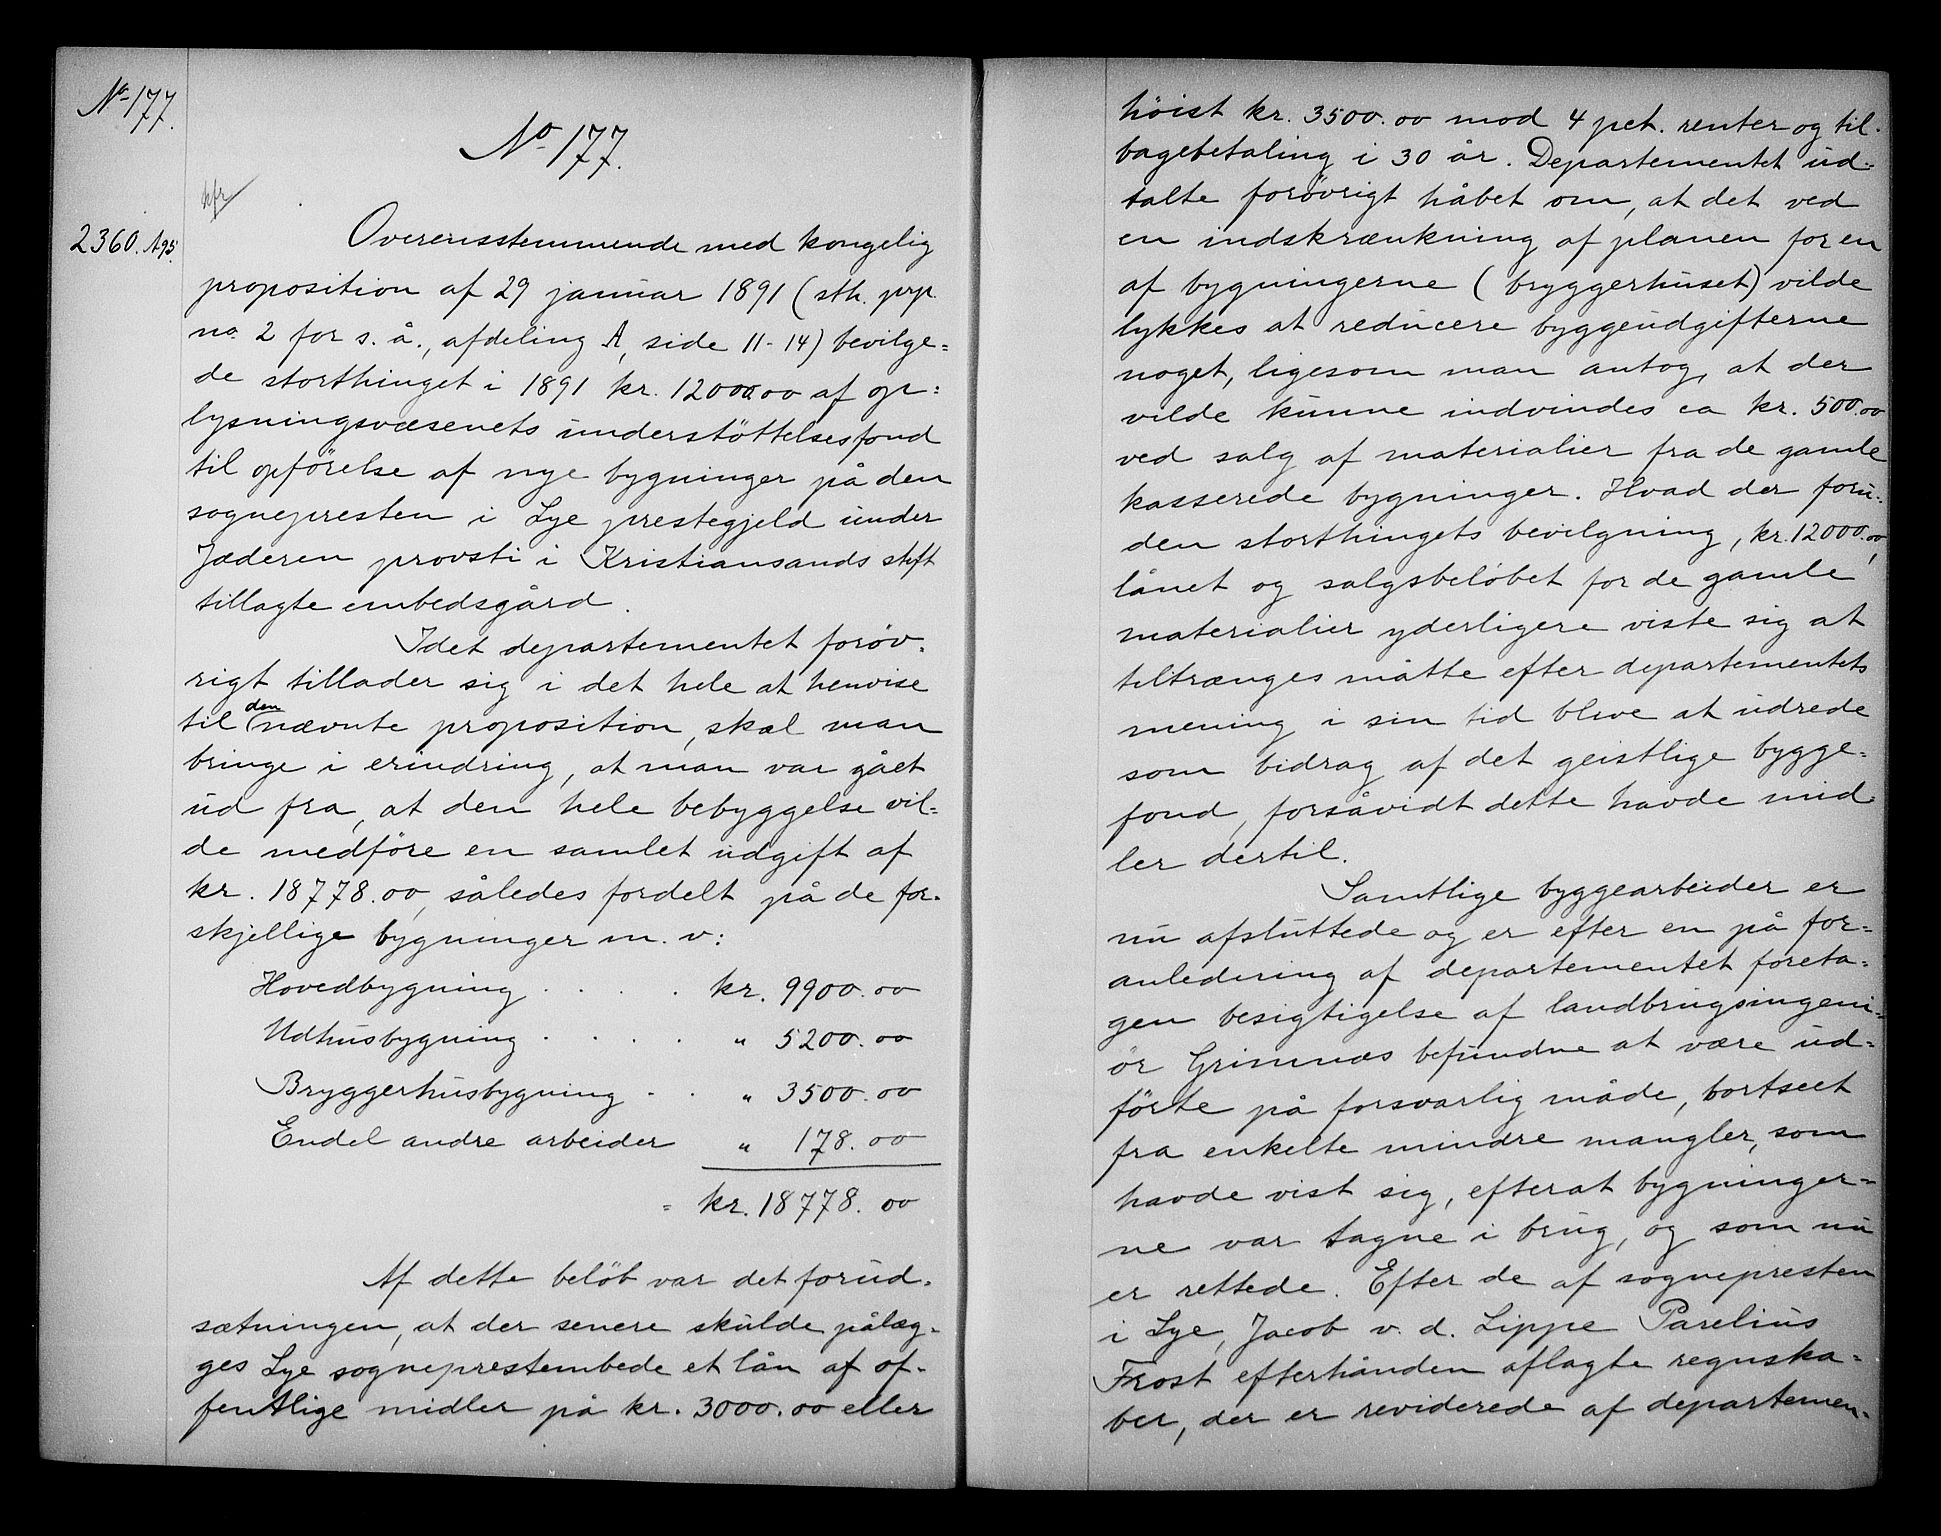 No 177.
No 177.
kfr
2360. A 95.
Overensstemmende med kongelig
proposition af 29 januar 1891 (sth. prp.
no. 2 for s. å., afdeling A, side 11-14) bevilge=
de storthinget i 1891 kr. 12000.00 af op=
lysningsvæsenets understöttelsesfond
til opförelse af nye bygninger på den
sognepresten i Lye prestegjeld under
Jæderen provsti i Kristiansands stift
tillagte embedsgård.
Idet departementet foröv-
rigt tillader sig i det hele at henvise
til den nævnte proposition, skal man
bringe i erindring, at man var gået
ud fra, at den hele bebyggelse vil=
de medföre en samlet udgift af
kr. 18778.00, således fordelt på de for-
skjellige bygninger m. v:
Hovedbygning . . . . kr. 9900.00
Udhusbygning . . . . " 5200.00
Bryggerhusbygning . . " 3500.00
Endel andre arbeider " 178.00
= kr. 18778.00
Af dette belöb var det forud-
sætningen, at der senere skulde pålæg-
ges Lye sogneprestembede et lån af of-
fentlige midler på kr. 3000.00 eller
höist kr. 3500.00 mod 4 pct. renter og til-
bagebetaling i 30 år. Departementet ud-
talte forövrigt håbet om, at det ved
en indskrænkning af planen for en
af bygningerne (bryggerhuset) vilde
lykkes at reducere byggeudgifterne
noget, ligesom man antog, at der
vilde kunne indvindes ca kr. 500.00
ved salg af materialier fra de gamle
kasserede bygninger. Hvad der foru-
den storthingets bevilgning, kr. 12000.00,
lånet og salgsbelöbet for de gamle
materialier yderligere viste sig at
tiltrænges måtte efter departementets
mening i sin tid blive at udrede
som bidrag af det geistlige bygge-
fond, forsåvidt dette havde mid-
ler dertil.
Samtlige byggearbeider er
nu afsluttede og er efter en på for=
anledning af departementet foreta-
gen besigtigelse af landbrugsingeni-
ör Grimnæs befundne at være ud=
förte på forsvarlig måde, bortseet
fra enkelte mindre mangler, som
havde vist sig, efterat bygninger=
ne var tagne i brug, og som nu
er rettede. Efter de af sognepresten
i Lye, Jacob v. d. Lippe Parelius
Frost efterhånden aflagte regnska-
ber, der er reviderede af departemen-